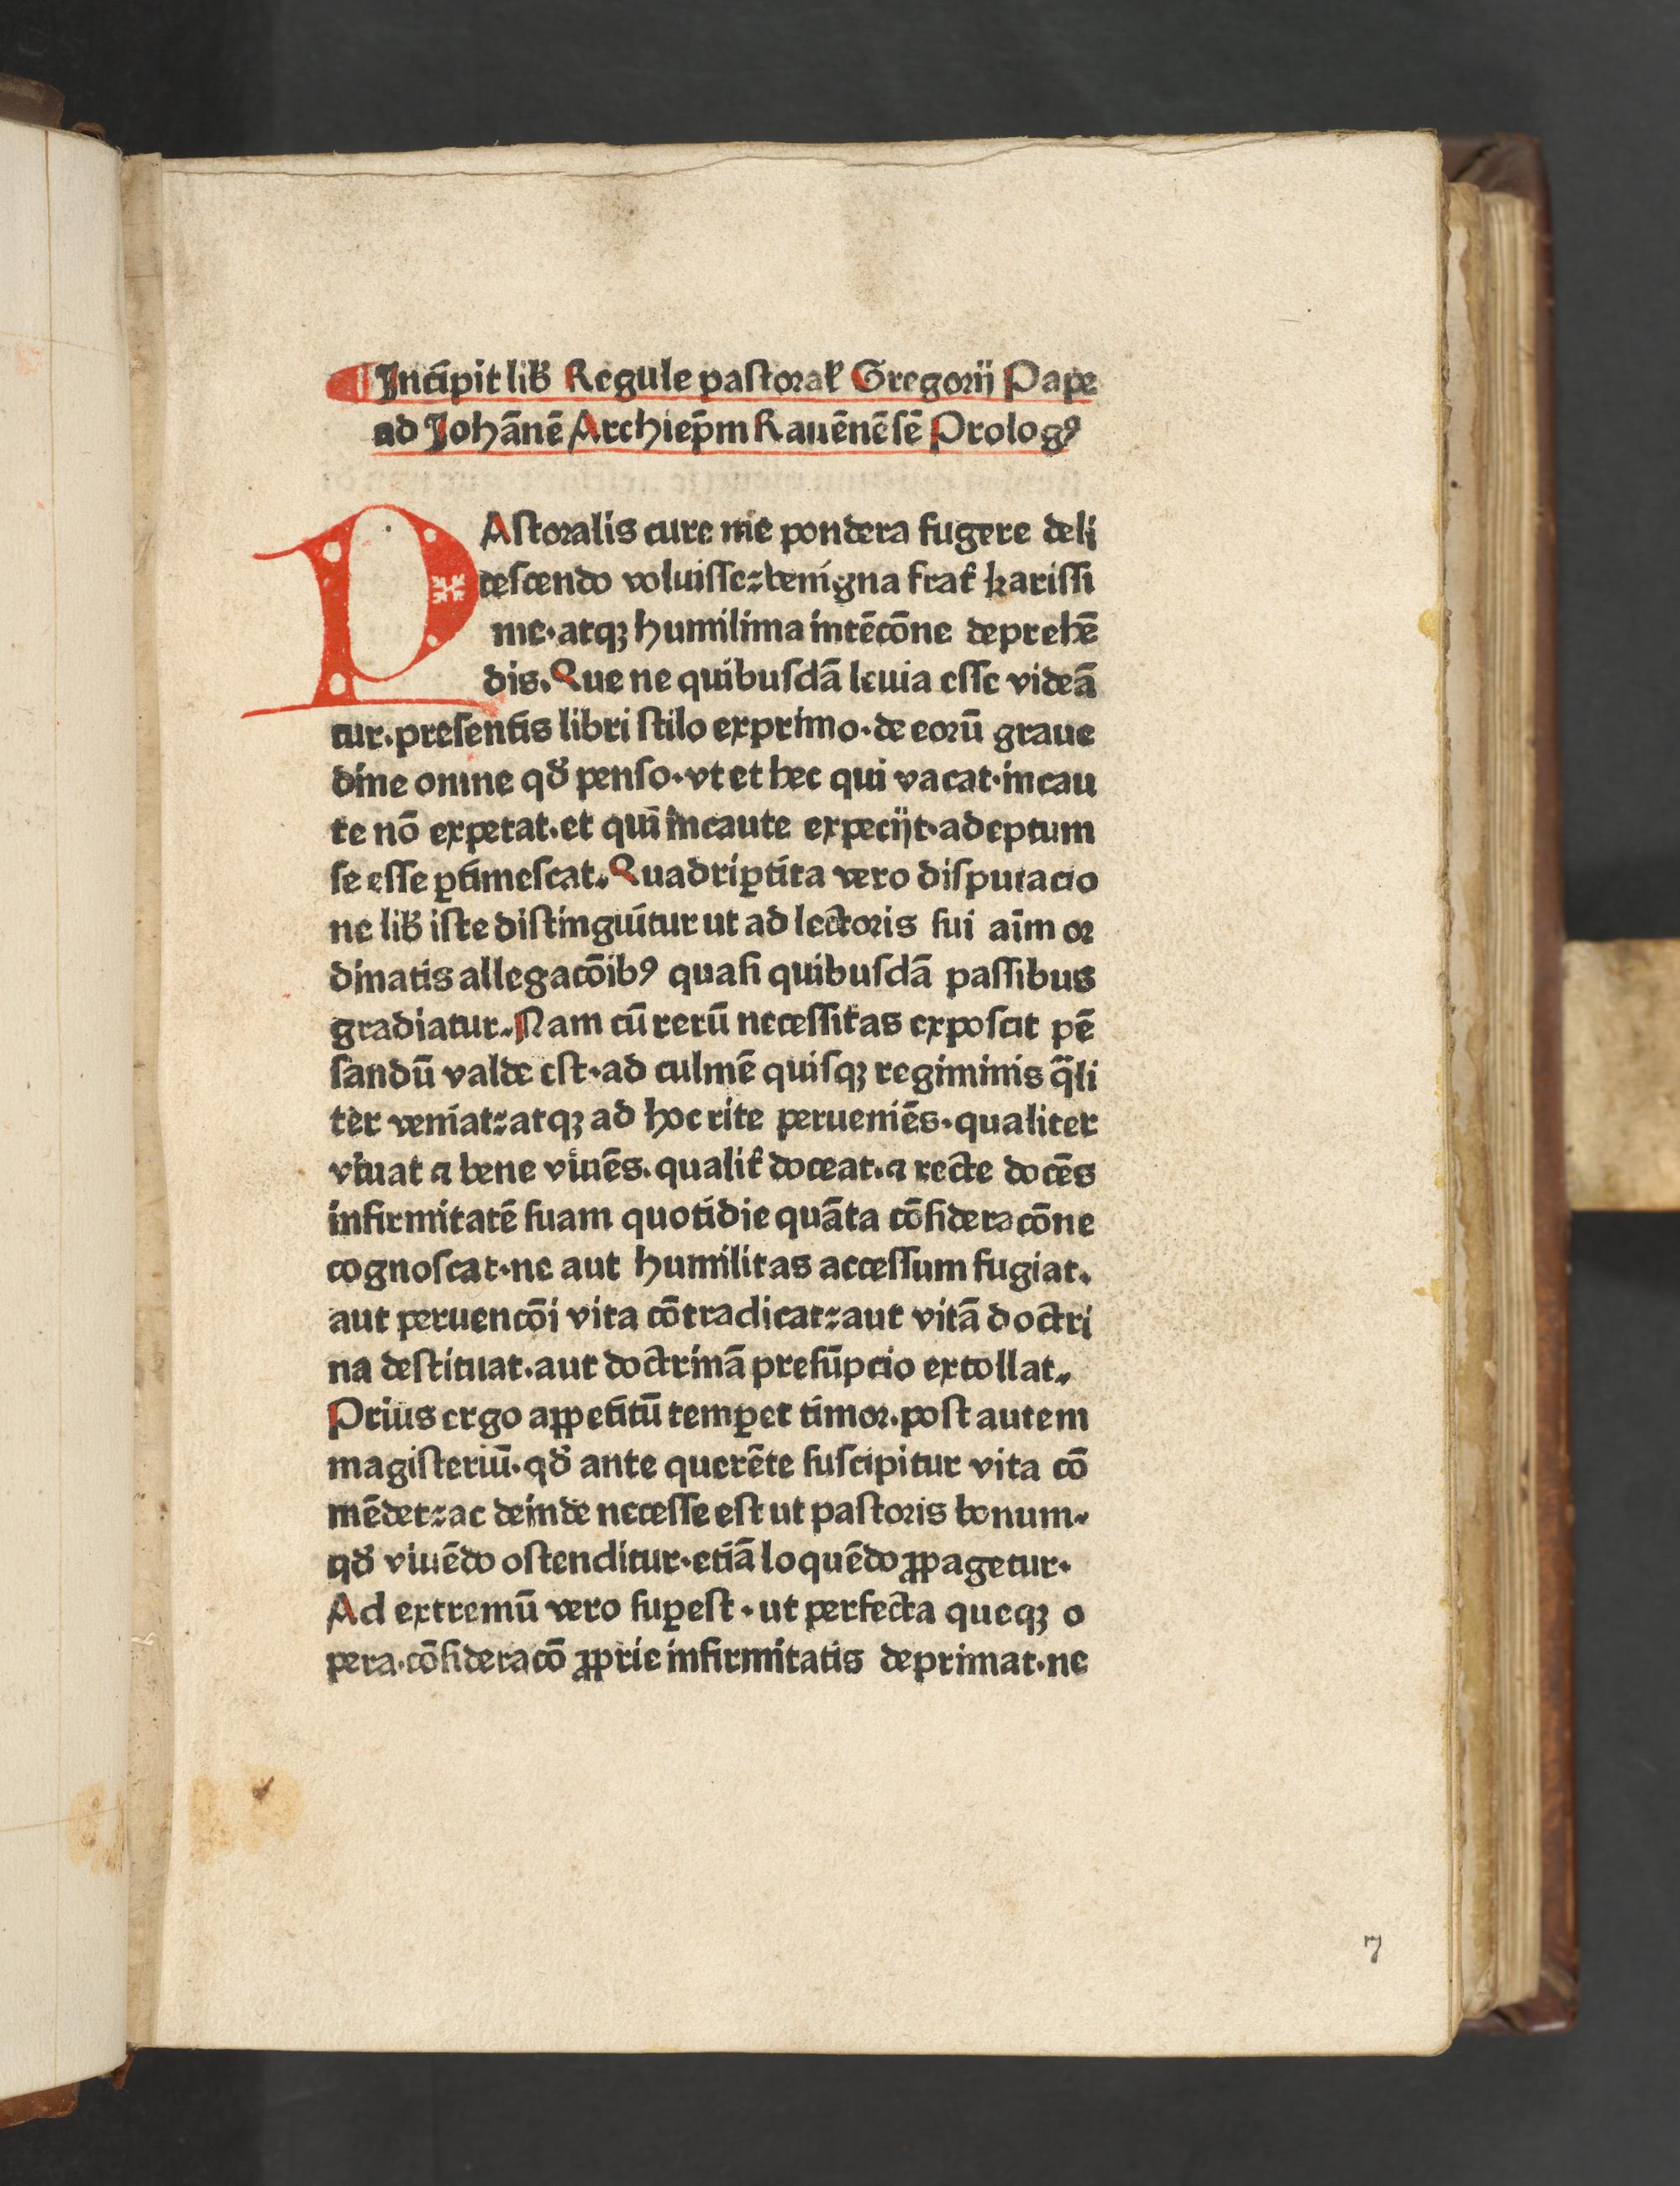 Incipit lib̄ Regule pastoral̄ Gregorij Pape
ad Johānē Archiep̄m Rauēnēsē Prologꝰ
PAstoralis cure me pondera fugere deli
tescendo voluisse: benigna frat̄ karissi
me. atqꝫ humilima intēcōne deprehē
dis. Que ne quibusdā leuia esse videā
tur. presentis libri stilo exprimo. de eorū graue
dine omne qđ penso. vt et hec qui vacat. incau
te nō expetat. et qui incaute expecijt. adeptum
se esse ꝑtimescat. Quadriꝑtita vero disputacio
ne lib̄ iste distinguitur ut ad lectoris sui aīm or
dinatis allegacōibꝰ quasi quibusdā passibus
gradiatur. Nam cū rerū necessitas exposcit pē
sandū valde est. ad culmē quisqꝫ regiminis q̄li
ter veniat: atqꝫ ad hoc rite perueniēs. qualiter
viuat ⁊ bene viuēs. qualit̄ doceat. ⁊ recte docēs
infirmitatē suam quotidie quāta cōsideracōne
cognoscat. ne aut humilitas accessum fugiat.
aut peruencōi vita cōtradicat: aut vitā doctri
na destituat. aut doctrinā presūpcio extollat.
Prius ergo appetitū temꝑet timor. post autem
magisteriū. qđ ante querēte suscipitur vita cō
mēdet: ac deinde necesse est ut pastoris bonum.
qđ viuēdo ostenditur. etiā loquēdo ꝓpagetur.
Ad extremū vero suꝑest. ut perfecta queqꝫ o
pera. cōsideracō ꝓprie infirmitatis deprimat. ne
7